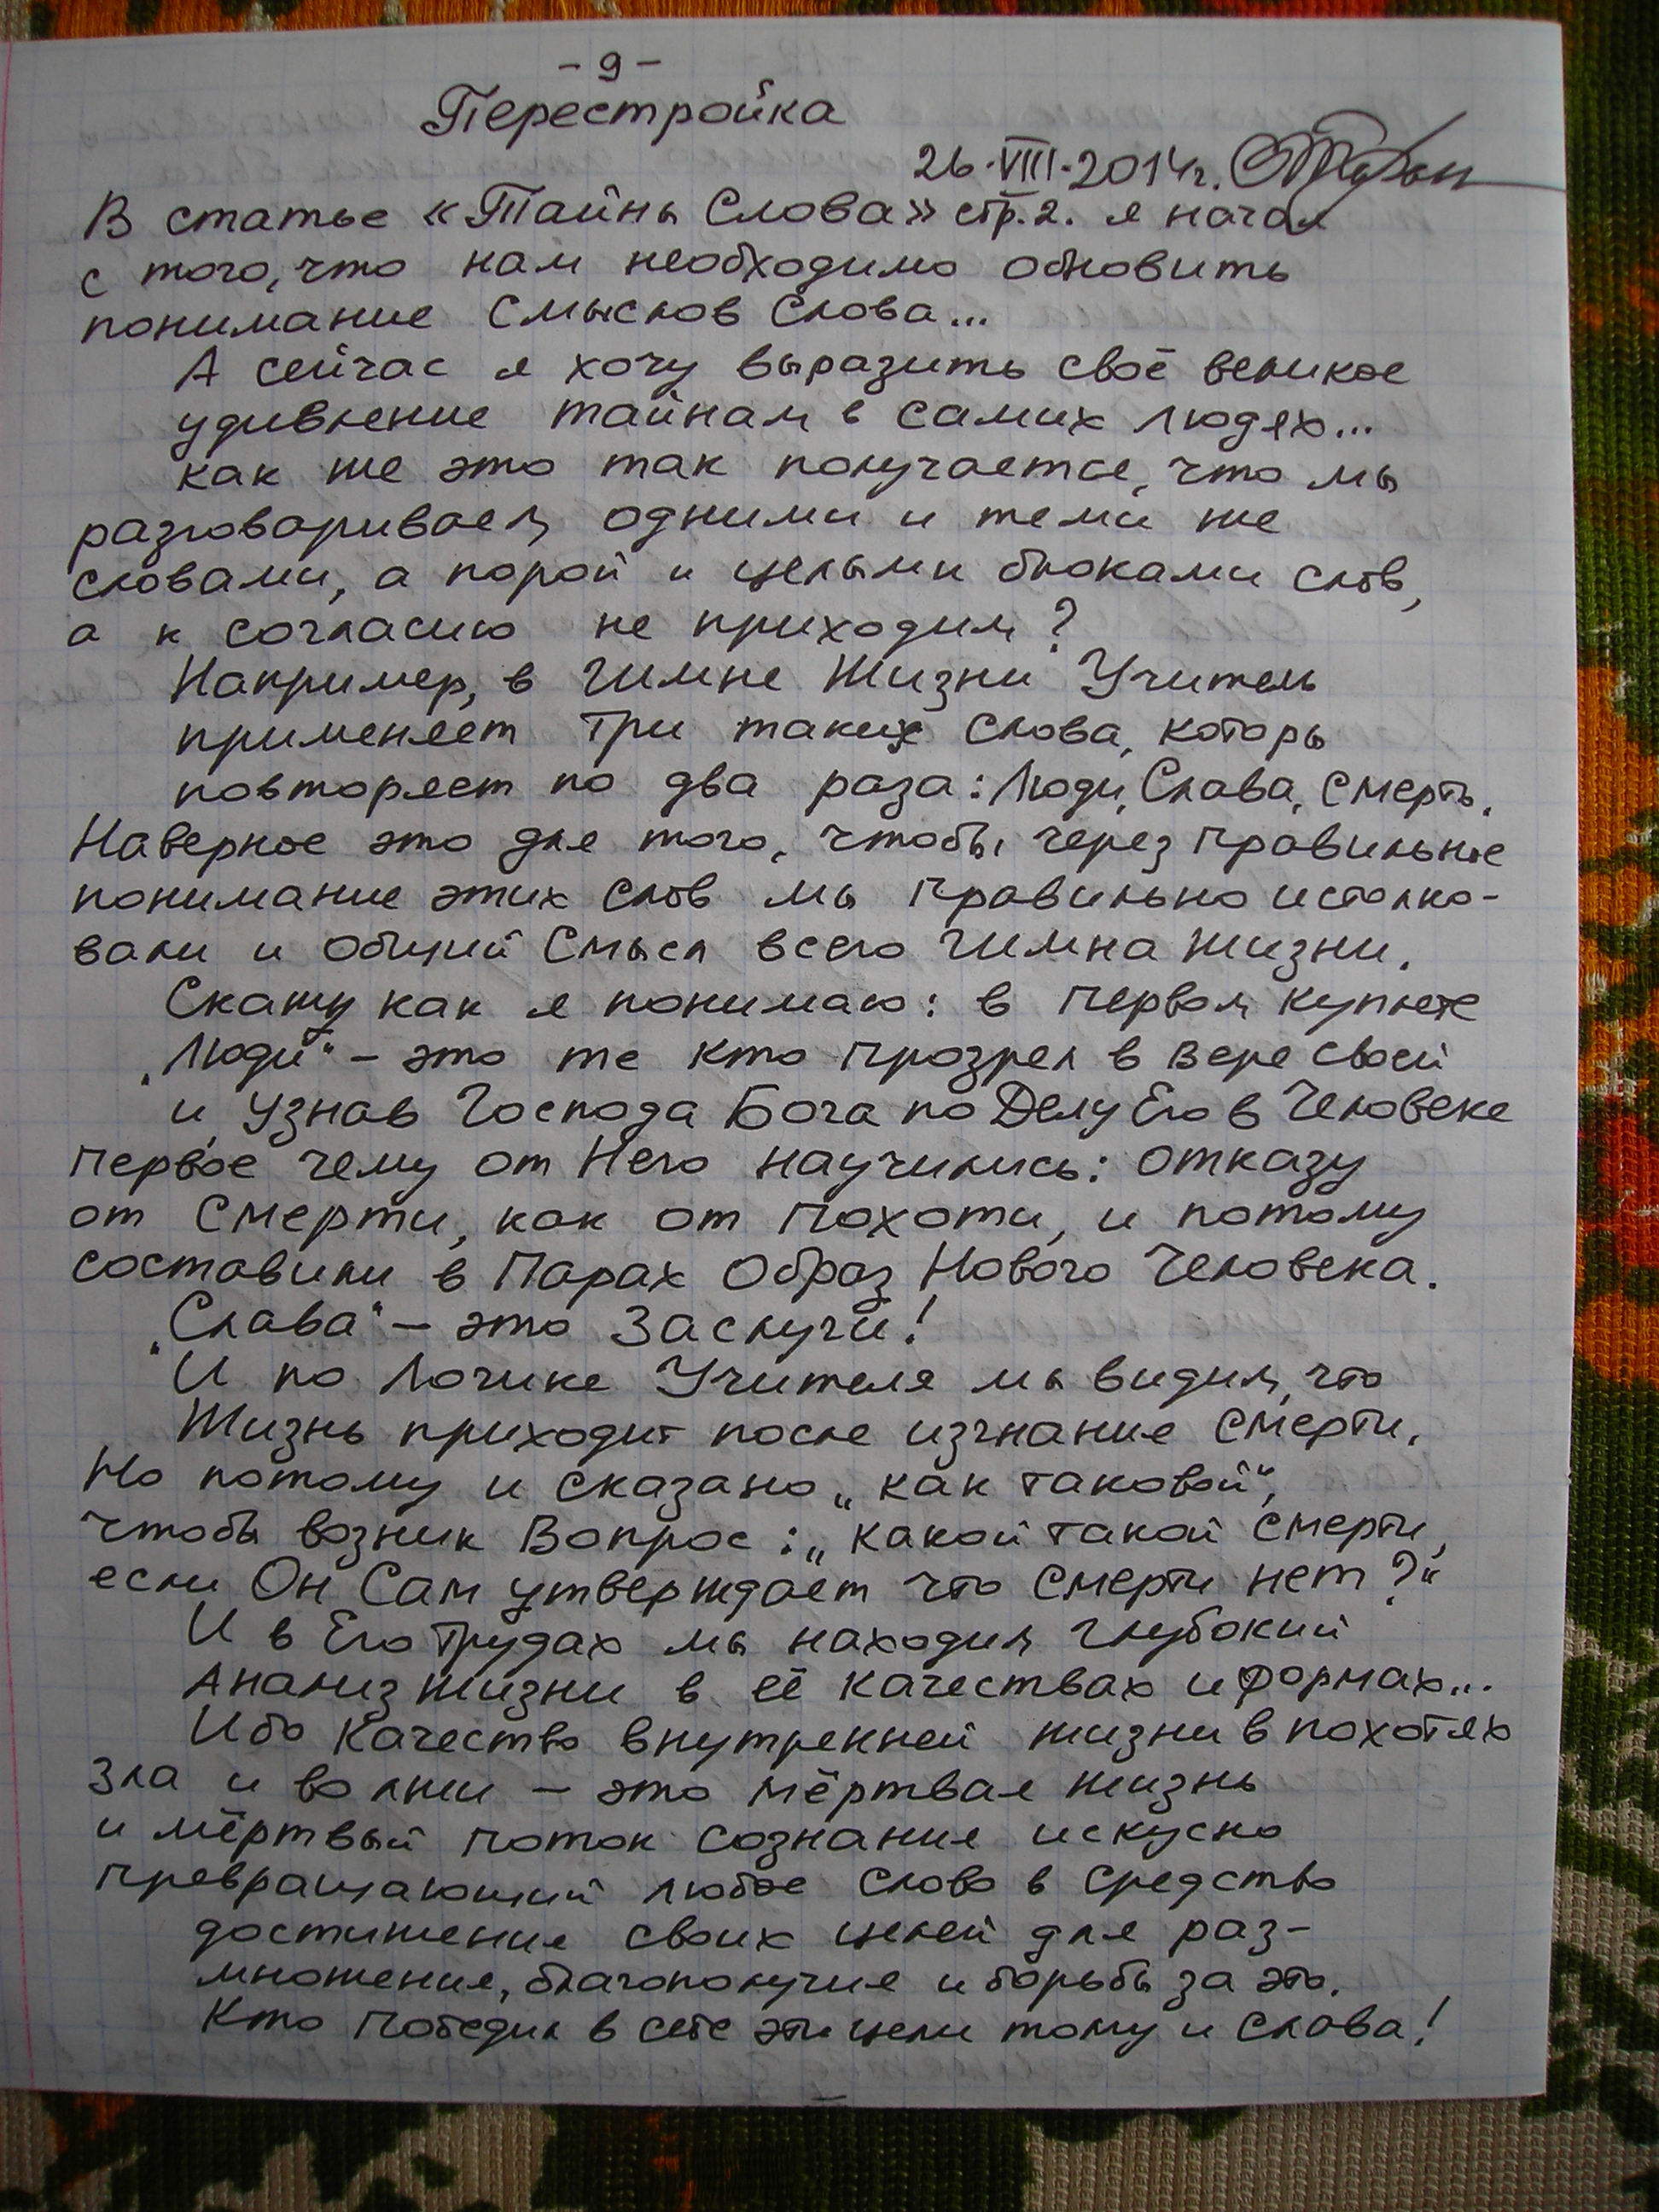 - 9 -
Перестройка
26.VIII.2014г.
В статье «Тайны Слова» стр.2. я начал
с того, что нам необходимо обновить
понимание Смыслов Слова...
А сейчас я хочу выразить своё великое
удивление тайнам в самих людях...
как же это так получается, что мы
разговариваем одними и теми же
словами, а порой и целыми блоками слов,
а к согласию не приходим?
Например, в Гимне Жизни Учитель
применяет три таких слова, которы
повторяет по два раза: Люди, Слава, Смерть.
Наверное это для того, чтобы через правильное
понимание этих слов мы правильно истолко-
вали и Общий Смысл всего Гимна Жизни.
Скажу как я понимаю: в первом куплете
„Люди“ - это те кто прозрел в Вере своей
и, узнав Господа Бога по Делу Его в Человеке
первое чему от Него научились: отказу
от Смерти, как от Похоти, и потому
составили в Парах Образ Нового Человека.
„Слава“ - это Заслуги!
И по Логике Учителя мы видим, что
Жизнь приходит после изгнания Смерти.
Но потому и сказано „как таковой“,
чтобы возник Вопрос: „какой такой Смерти,
если Он Сам утверждает что Смерти нет?“
И в Его Трудах мы находим глубокий
Анализ Жизни в её качествах и формах...
Ибо Качество внутренней жизни в похотях
зла и во лжи - это мёртвая жизнь
и мёртвый поток сознания искусно
превращающий любое слово в средство
достижения своих целей для раз-
множения, благополучия и борьбы за это.
Кто победил в себе эти цели тому и слава!